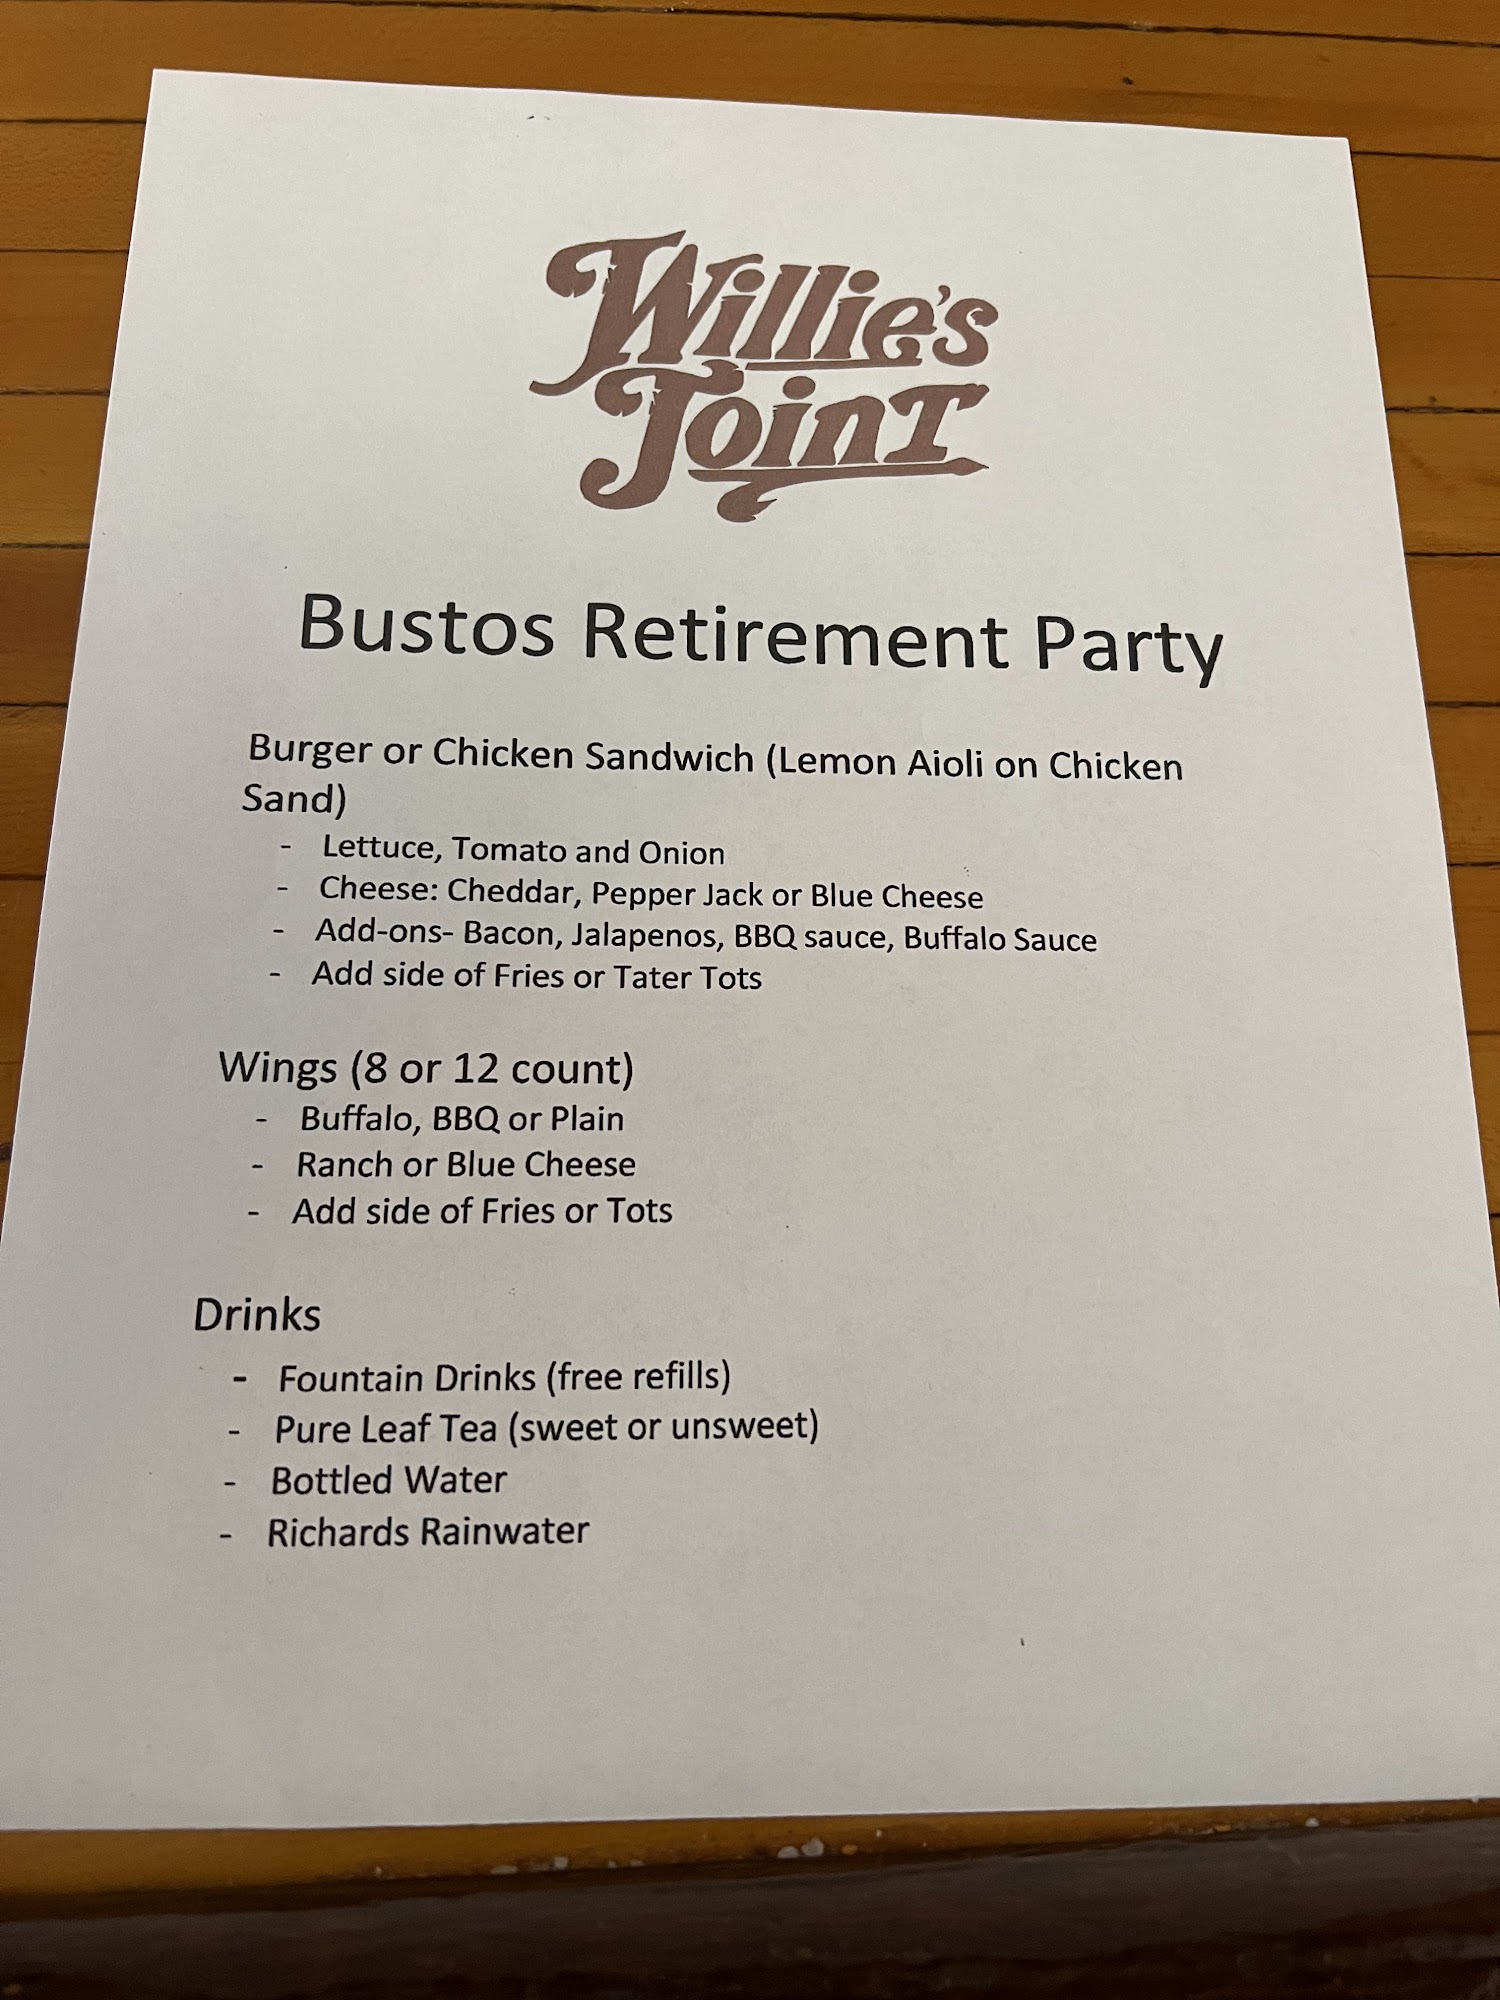 Willie's
Joint
Bustos Retirement Party
Burger or Chicken Sandwich (Lemon Aioli on Chicken
Sand)
- Lettuce, Tomato and Onion
- Cheese: Cheddar, Pepper Jack or Blue Cheese
- Add-ons- Bacon, Jalapenos, BBQ sauce, Buffalo Sauce
- Add side of Fries or Tater Tots
Wings (8 or 12 count)
- Buffalo, BBQ or Plain
- Ranch or Blue Cheese
- Add side of Fries or Tots
Drinks
- Fountain Drinks (free refills)
- Pure Leaf Tea (sweet or unsweet)
- Bottled Water
- Richards Rainwater